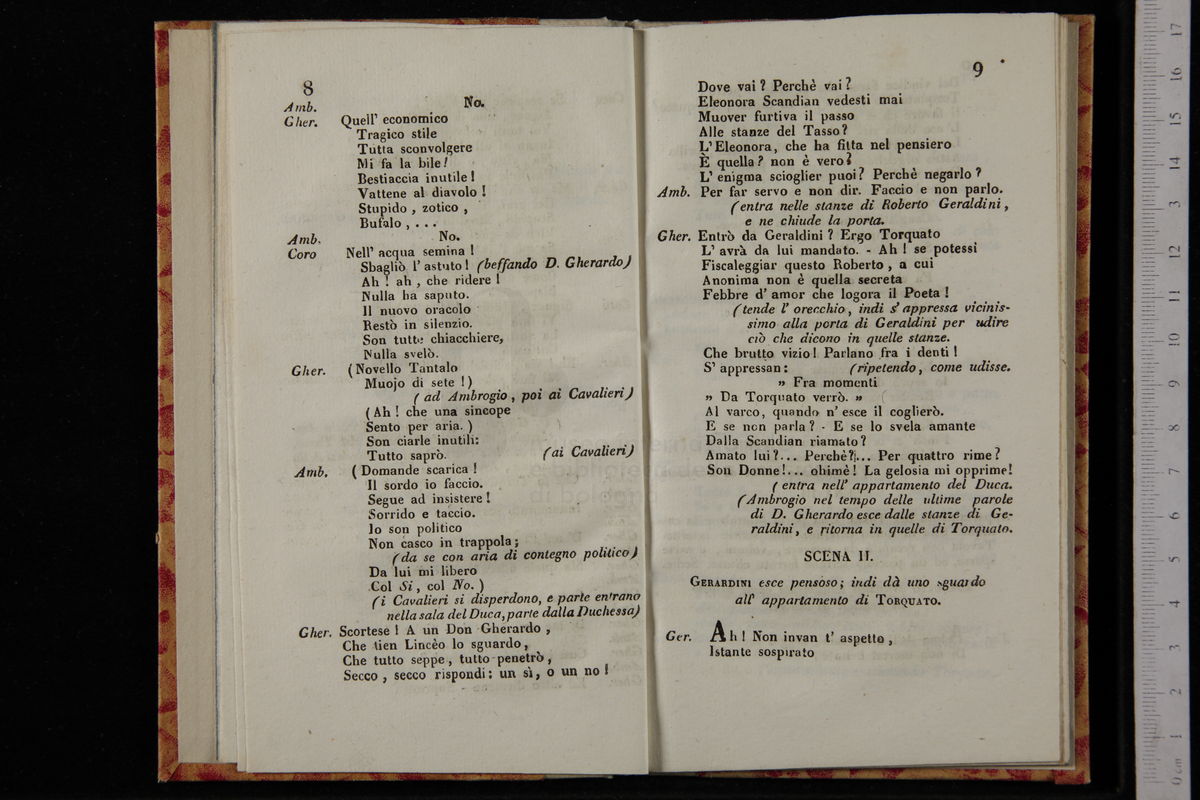 8
Amb. No.
Gher. Quell' economico
Tragico stile
Tutta sconvolgere
Mi fa la bile!
Bestiaccia inutile!
Vattene al diavolo!
Stupido, zotico,
Bufalo, . . .
Amb. No.
Coro Nell' acqua semina!
Sbagliò l' astuto! (beffando D. Gherardo)
Ah! ah, che ridere!
Nulla ha saputo.
Il nuovo oracolo
Restò in silenzio.
Son tutte chiacchiere,
Nulla svelò.
Gher. (Novello Tantalo
Muojo di sete!)
(ad Ambrogio, poi ai Cavalieri)
(Ah! che una sincope
Sento per aria.)
Son ciarle inutili:
Tutto saprò. (ai Cavalieri)
Amb. (Domande scarica!
Il sordo io faccio.
Segue ad insistere!
Sorrido e taccio.
Io son politico
Non casco in trappola;
(da se con aria di contegno politico)
Da lui mi libero
Col Si, col No.)
(i Cavalieri si disperdono, e parte entrano
nella sala del Duca, parte dalla Duchessa)
Gher. Scortese! A un Don Gherardo,
Che tien Lincèo lo sguardo,
Che tutto seppe, tutto penetrò,
Secco, secco rispondi: un sì, o un no!
9
Dove vai? Perchè vai?
Eleonora Scandian vedesti mai
Muover furtiva il passo
Alle stanze del Tasso?
L' Eleonora, che ha fitta nel pensiero
È quella? non è vero?
L' enigma scioglier puoi? Perchè negarlo?
Amb. Per far servo e non dir. Faccio e non parlo.
(entra nelle stanze di Roberto Geraldini,
e ne chiude la porta.
Gher. Entrò da Geraldini? Ergo Torquato
L' avrà da lui mandato. - Ah! se potessi
Fiscaleggiar questo Roberto, a cui
Anonima non è quella secreta
Febbre d' amor che logora il Poeta!
(tende l' orecchio, indi s' appressa vicinis-
simo alla porta di Geraldini per udire
ciò che dicono in quelle stanze.
Che brutto vizio! Parlano fra i denti!
S' appressan: (ripetendo, come udisse.
» Fra momenti
» Da Torquato verrò. »
Al varco, quando n' esce il coglierò.
E se non parla? - E se lo svela amante
Dalla Scandian riamato?
Amato lui?... Perchè?... Per quattro rime?
Son Donne!... ohimè! La gelosia mi opprime!
(entra nell' appartamento del Duca.
(Ambrogio nel tempo delle ultime parole
di D. Gherardo esce dalle stanze di Ge-
raldini, e ritorna in quelle di Torquato.
SCENA II.
GERARDINI esce pensoso; indi dà uno sguardo
all' appartamento di TORQUATO.
Ger. Ah! Non invan t' aspetto,
Istante sospirato
0 cm 1 2 3 4 5 6 7 8 9 10 11 12 13 14 15 16 17